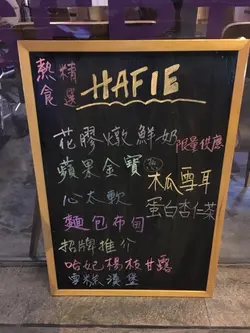 熱食精選
HAFIE
花膠燉鮮奶
限量供應
蘋果金寶
木瓜雪耳
心太軟
蛋白杏仁茶
麵包布甸
招牌推介
哈妃楊枝甘露
雪糕漢堡